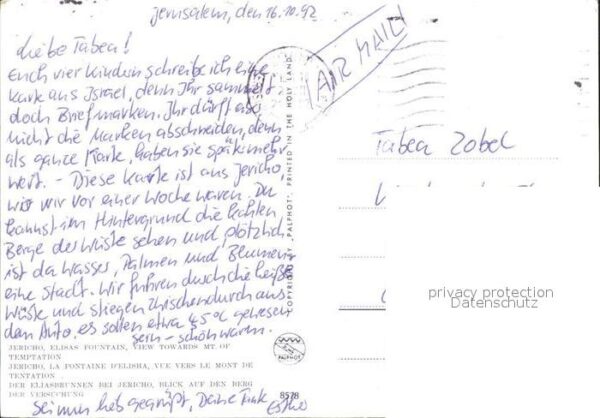 Jerusalem, den 16.10.92
Liebe Tabea!
Euch vier Kindern schreibe ich eine
Karte aus Israel, denn Ihr sammelt
doch Briefmarken. Ihr dürft aber
nicht die Marken abschneiden, denn
als ganze Karte haben sie später mehr
Wert. - Diese Karte ist aus Jericho,
wo wir vor einer Woche waren. Du
kannst im Hintergrund die kahlen
Berge der Wüste sehen und plötzlich
ist da Wasser, Palmen und Blumen,
eine Stadt. Wir fuhren durch die heiße
Wüste und stiegen zwischendurch aus
dem Auto, es sollen etwa 45°C gewesen
sein - schön warm.
JERICHO, ELISAS FOUNTAIN, VIEW TOWARDS MT. OF
TEMPTATION
JERICHO, LA FONTAINE D'ELISHA, VUE VERS LE MONT DE
TENTATION
DER ELIASBRUNNEN BEI JERICHO, BLICK AUF DEN BERG
DER VERSUCHUNG
8578
Sei nun lieb gegrüßt, Deine Tante
COPYRIGHTED BY "PALPHOT" PRINTED IN THE HOLY LAND
PALPHOT
AIR MAIL
Tabea Zobel
privacy protection
Datenschutz